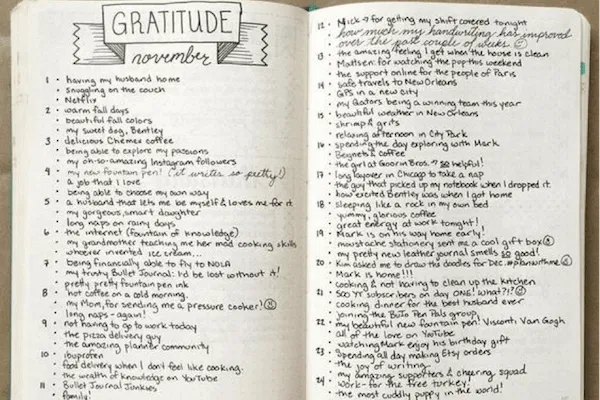 GRATITUDE
november
1 • having my husband home
• snuggling on the couch
• Netflix
2 • warm fall days
• beautiful fall colors
• my sweet dog, Bentley
3 • delicious Chemex coffee
• being able to explore my passions
• my oh-so-amazing Instagram followers
4 • my new fountain pen! (it writes so pretty!)
• a job that I love
• being able to choose my own way
5 • a husband that lets me be myself & loves me for it
• my gorgeous, smart daughter
• long naps on rainy days
6 • the internet (fountain of knowledge)
• my grandmother teaching me her mad cooking skills
• whoever invented ice cream...
7 • being financially able to fly to NOLA
• my trusty Bullet Journal: I'd be lost without it!
• pretty pretty fountain pen ink
8 • hot coffee on a cold morning.
• my Mom, for sending me a pressure cooker!
• long naps - again!
9 • not having to go to work today
• the pizza delivery guy
• the amazing planner community
10 • ibuprofen
• food delivery when I don't feel like cooking.
• the wealth of knowledge on YouTube
11 • Bullet Journal Junkies
• family
12 • Mick → for getting my shift covered tonight
• how much my handwriting has improved
over the past couple of weeks
• the amazing feeling I get when the house is clean
13 • Mattsen: for watching the pup this weekend
• the support online for the people of Paris
14 • safe travels to New Orleans
• GPS in a new city
• my Gators being a winning team this year
15 • beautiful weather in New Orleans
• shrimp & grits
• relaxing afternoon in City Park
16 • spending the day exploring with Mark
• Beignets & coffee
• the girl at Goorin Bros. → so helpful!
17 • long layover in Chicago to take a nap
• the guy that picked up my notebook when I dropped it.
• how excited Bentley was when I got home
18 • sleeping like a rock in my own bed
• yummy, glorious coffee
• great energy at work tonight!
19 • Mark is on his way home early!
• moustache stationery sent me a gift box
• my pretty new leather journal smells so good!
20 • Kim asked me to draw the doodles for Dec. #planwithme
• Mark is home!!!
• cooking & not having to clean up the kitchen
21 • 500 YT subscribers on day ONE! what?!?
• cooking dinner for the best husband ever
• joining the BuJo Pen Pals group
22 • my beautiful new fountain pen! Visconti Van Gogh
• all of the love on YouTube
• watching Mark enjoy his birthday gift
23 • spending all day making Etsy orders
• the joy of writing
• my amazing supporters & cheering squad
24 • work - for the free turkey!
• the most cuddly puppy in the world!